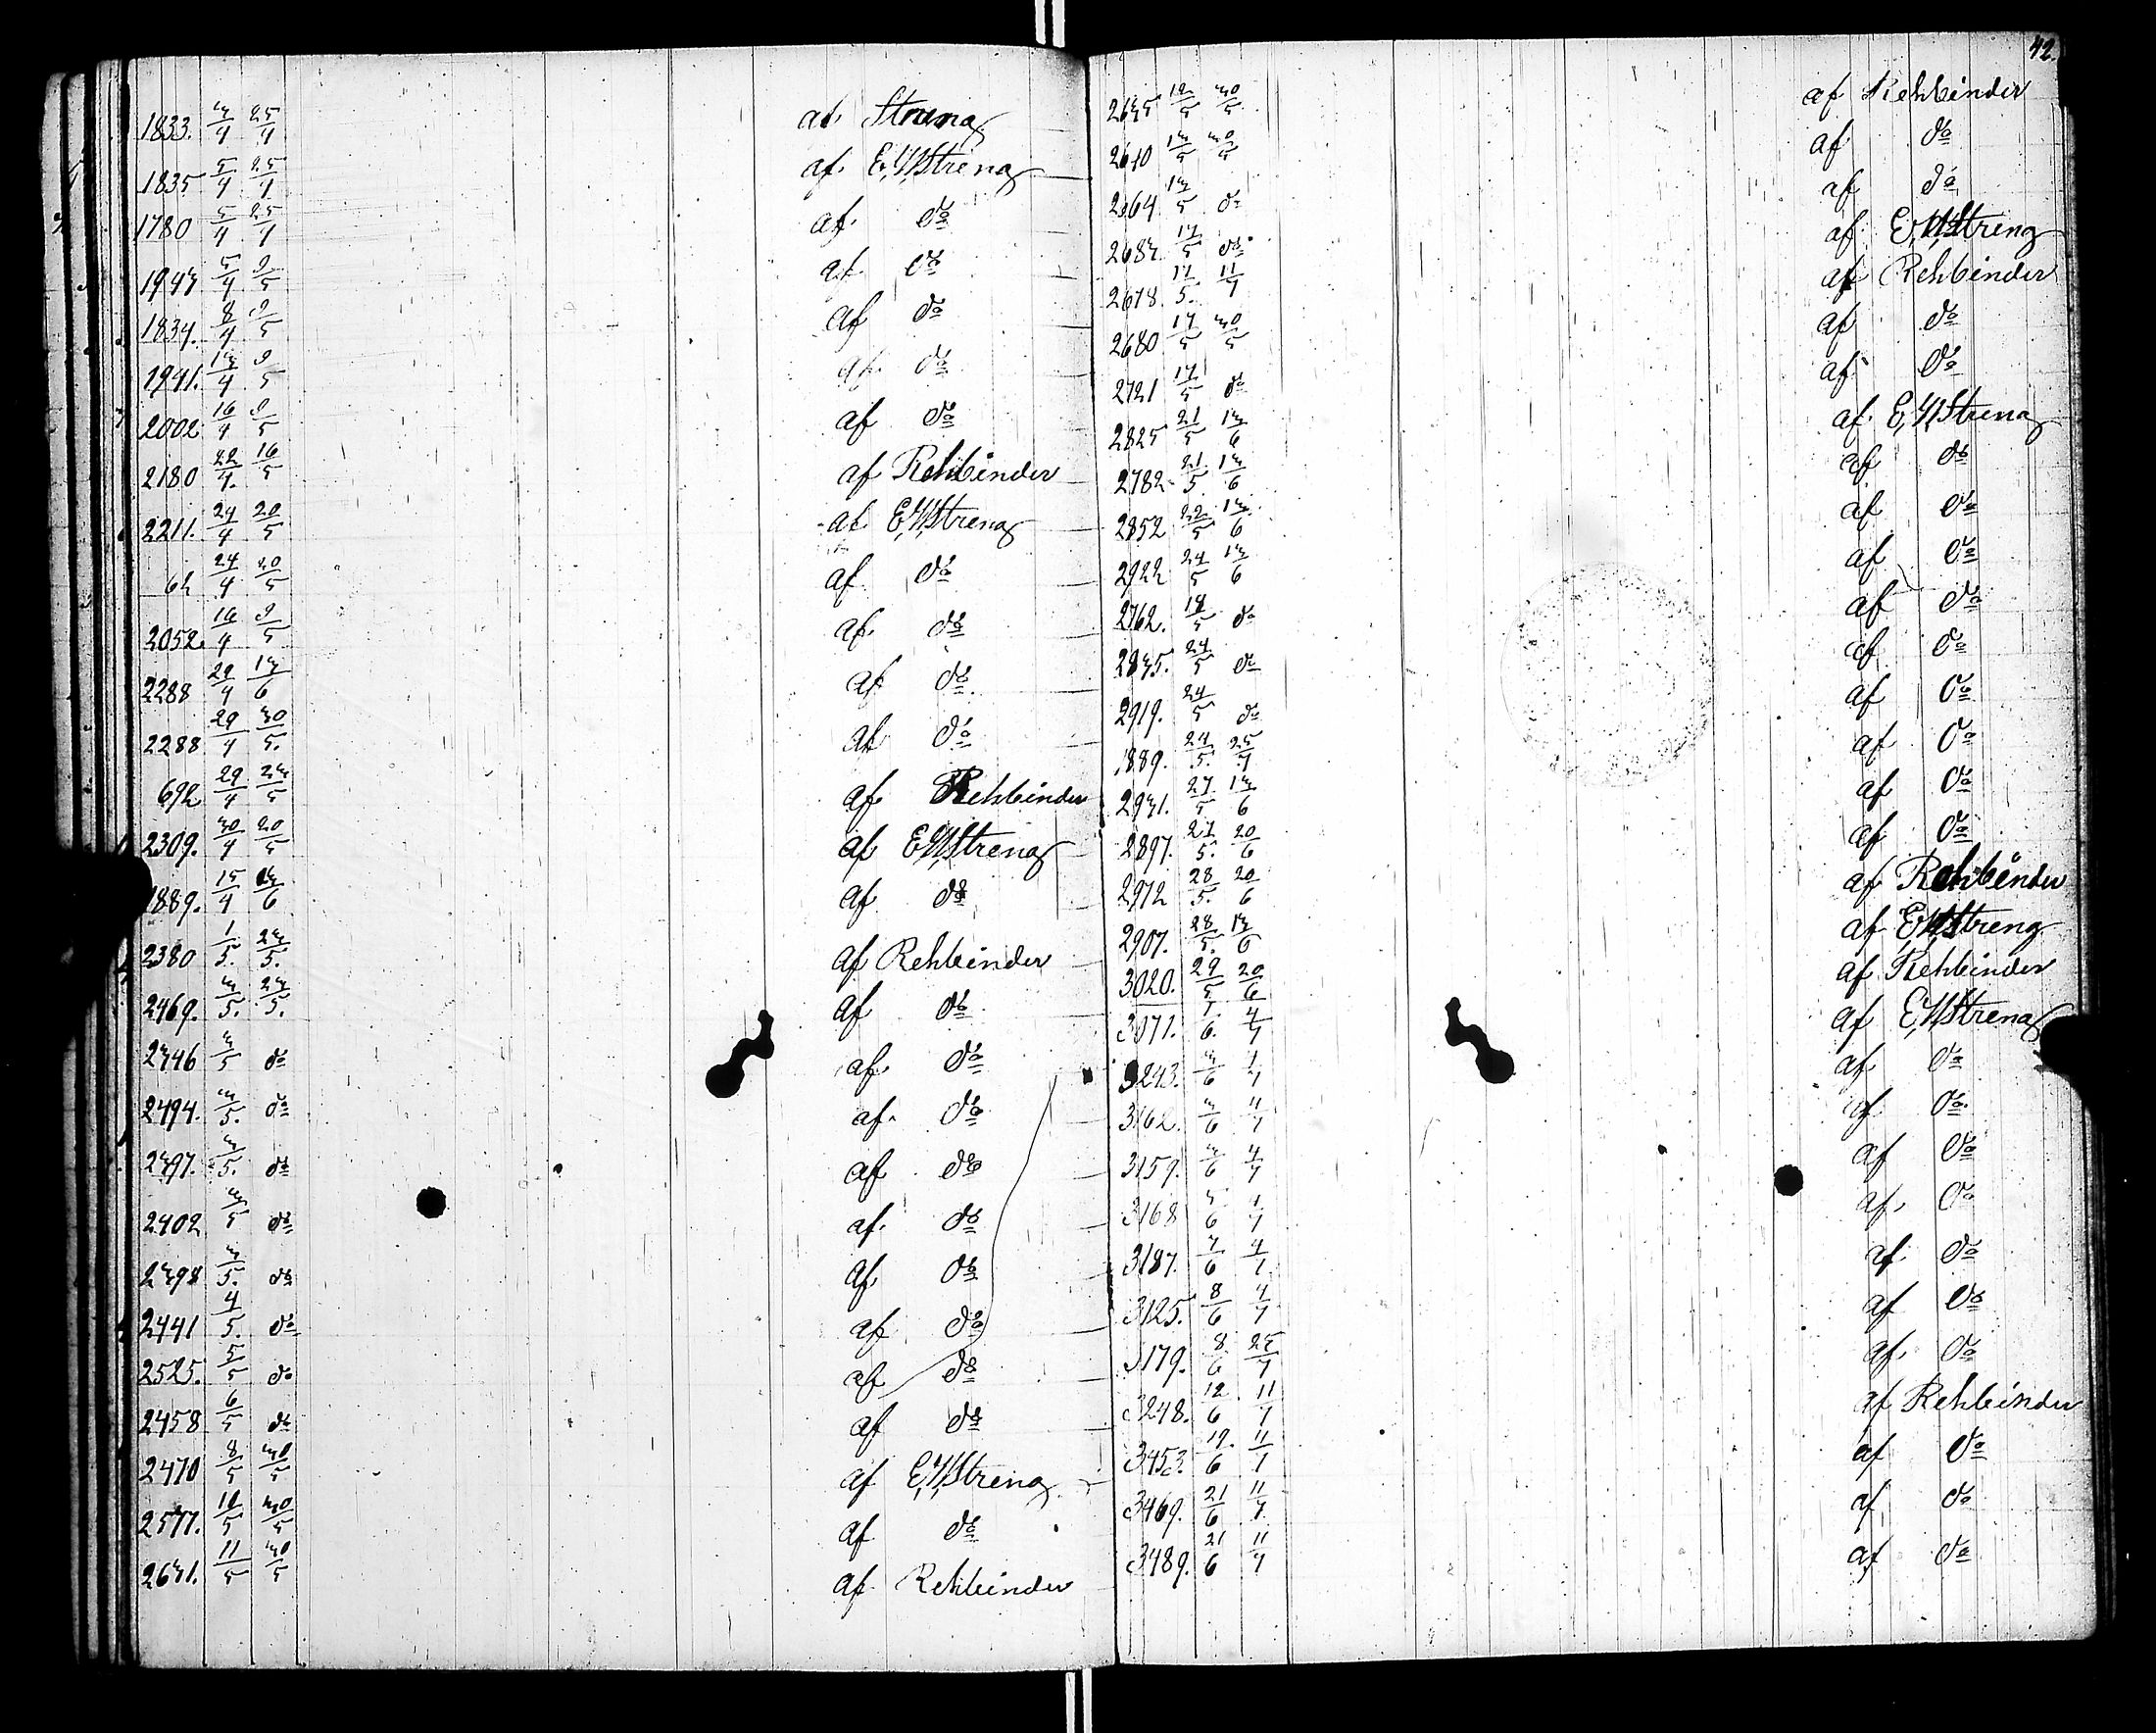 1833. 3/4 25/4 af Streng
1835 5/4 25/4 af E,W,Streng
1780 5/4 25/4 af do
1943 5/4 9/5 af do
1834. 8/4 9/5 af do
1941. 13/4 9/5 af do
2002 16/4 9/5 af do
2180 22/4 16/5 af Rehbinder
2211. 24/4 20/5 af E,W,Streng
62 24/4 20/5 af do
2052. 16/4 9/5 af do
2288 29/4 13/6 af do
2288 29/4 30/5. af do
692 29/4 23/5 af Rehbinder
2309. 30/4 20/5 af E,W,Streng
1889. 15/4 13/6 af do
2380 1/5. 23/5. af Rehbinder
2469. 3/5. 23/5. af do
2346 3/5 do af do
2494. 3/5. do af do
2397. 3/5. do af do
2402 3/5 do af do
2398 3/5. do af do
2441 4/5. do af do
2525. 5/5 do af do
2458 6/5 do af do
2470 8/5 30/5 af E,W,Streng
2577. 10/5 30/5 af do
2631. 11/5 30/5 af Rehbinder
42.
2635 12/5 30/5 af Rehbinder
2610 13/5 30/5 af do
2364 13/5 do af do
2683. 17/5 do af E,W,Streng
2678. 17/5. 11/7 af Rehbinder
2680 17/5 30/5 af do
2721 17/5 do af do
2825 21/5 13/6 af E,W,Streng
2782 21/5 13/6 af do
2852 22/5 13/6 af do
2922 24/5 13/6 af do
2762. 14/5 do af do
2835. 24/5 do af do
2919. 24/5 do af do
1889. 24/5. 25/7 af do
2931. 27/5 13/6 af do
2897. 27/5. 20/6 af do
2972 28/5. 20/6 af Rehbinder
2907. 28/5. 13/6 af E,W,Streng
3020. 29/5 20/6 af Rehbinder
3071. 1/6. 4/7 af E,W,Streng
3243. 3/6 4/7 af do
3162. 3/6 4/7 af do
3159. 3/6 4/7 af do
3168 3/6 4/7 af, do
3187. 7/6 4/7 af do
3125. 8/6 4/7 af do
3179. 8/6 25/7 af do
3248. 12/6 11/7 af Rehbinder
3453. 19/6 11/7 af do
3469. 21/6 11/7 af do
3489. 21/6 11/7 af do